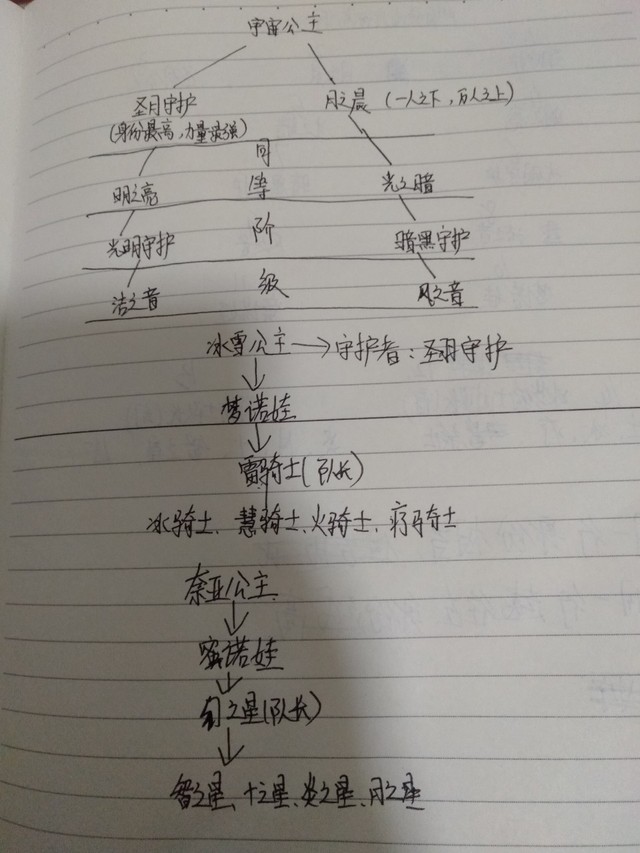 宇宙公主
圣月守护 月之晨 (一人之下,万人之上)
(身份最高,力量最强)
同
明之亮 等 光之暗
光明守护 阶 暗黑守护
洁之音 级 风之音
冰雪公主→守护者:圣月守护
梦诺娃
雷骑士(队长)
冰骑士、慧骑士、火骑士、疗骑士
奈亚公主
蜜诺娃
之星(队长)
智之星、十之星、炎之星、月之星